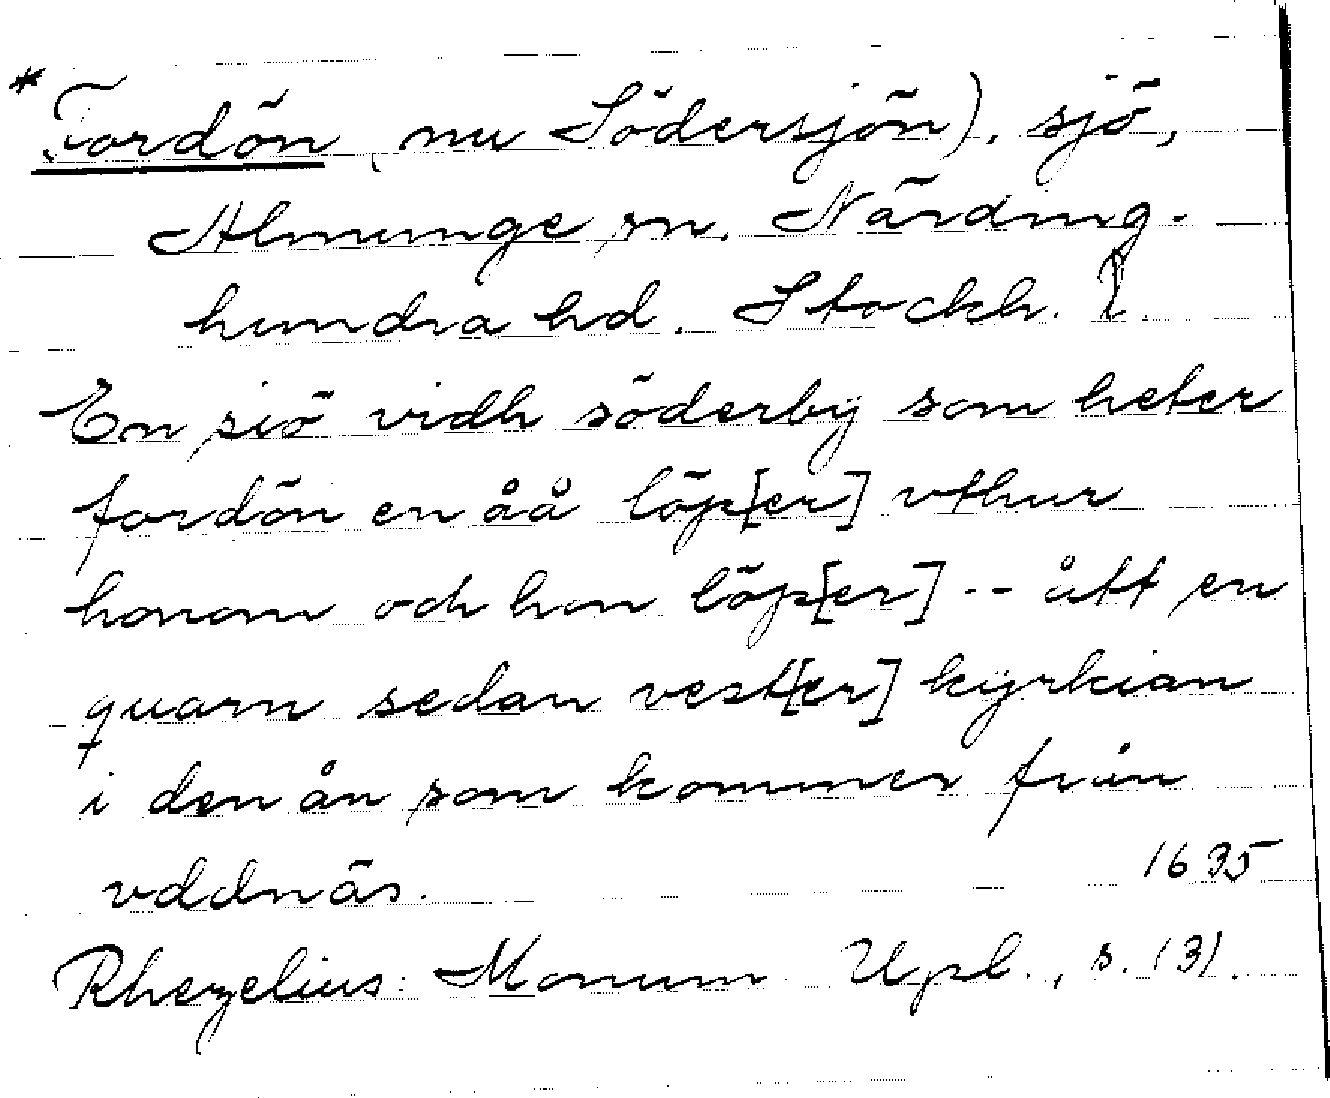 *Fordön (nu Södersjön), sjö,
Almunge sn. Närding-
hundra hd. Stockh. l.
En siö vidh söderbÿ som heter
fordön en åå löp[er] vthur
honom och hon löp[er] -- ått en
quarn sedan vest[er] kÿrkian
i den ån som kommer från
vddnäs. 1635
Rhezelius: Monum Upl., s. 131.